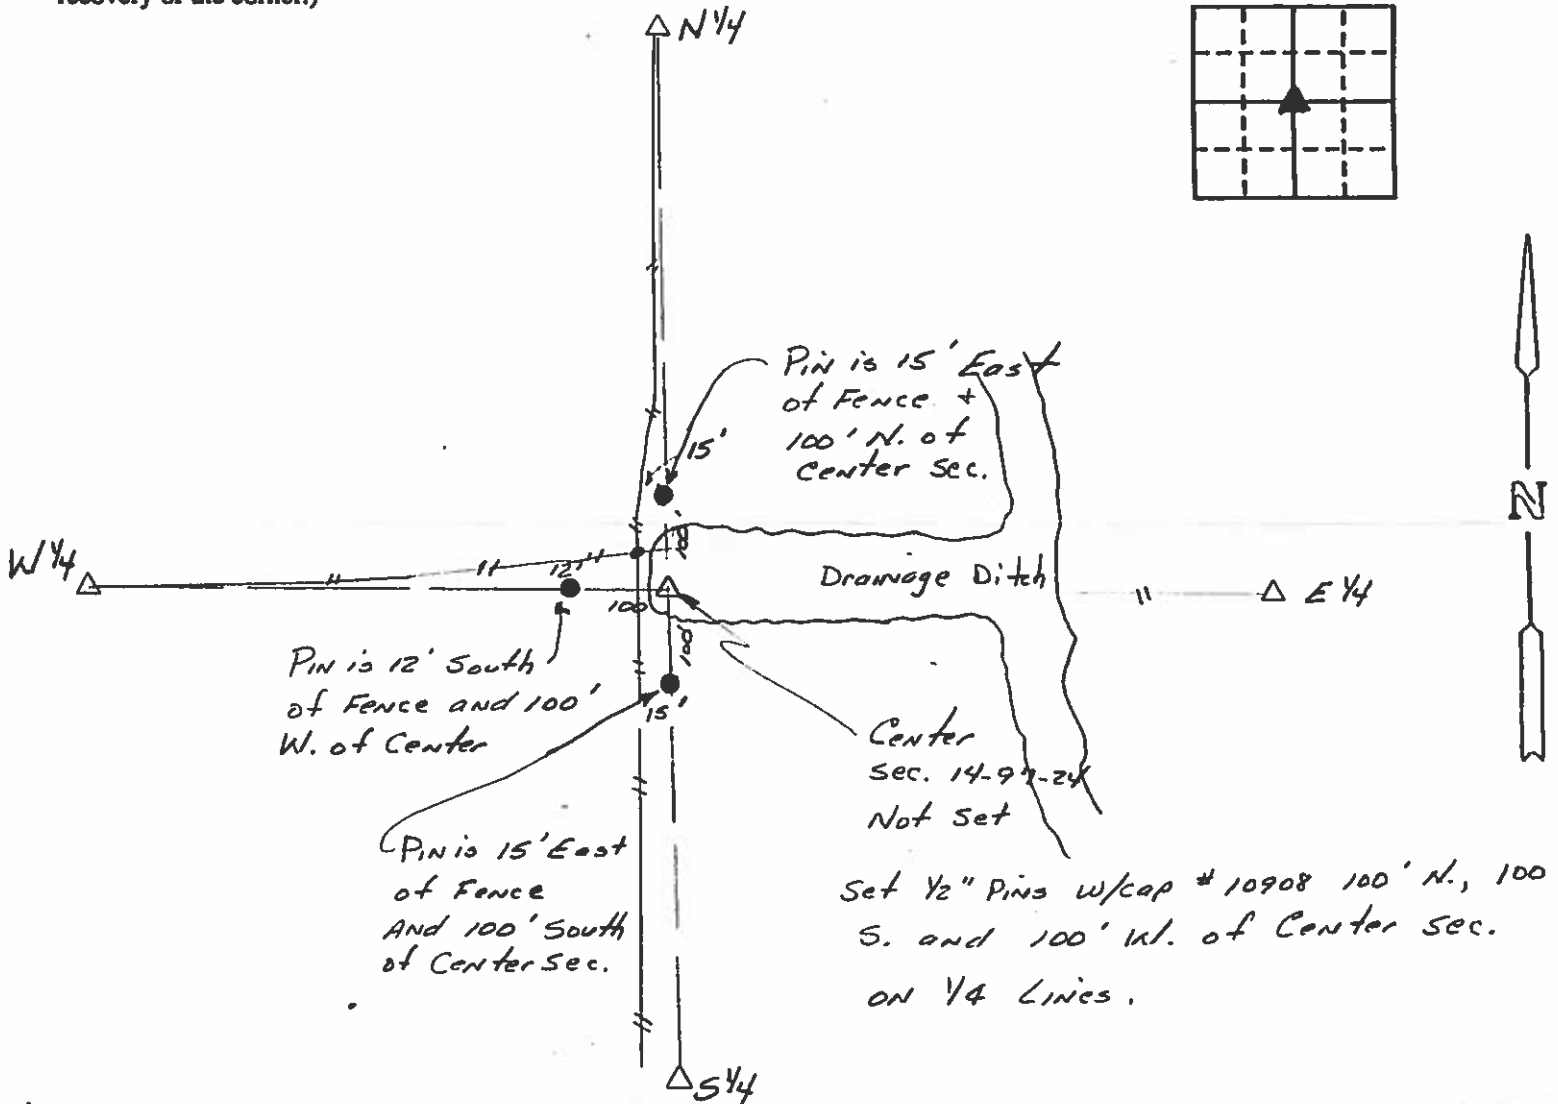 N 1/4
Pin is 15' East
of Fence +
100' N. of
Center Sec.
15'
100'
N
W 1/4
12'
100
Drainage Ditch
E 1/4
100'
Pin is 12' South
of Fence and 100'
W. of Center
15'
Center
Sec. 14-97-24
Not Set
Pin is 15' East
of Fence
And 100' South
of Center Sec.
Set 1/2" Pins w/cap #10908 100' N., 100
S. and 100' W. of Center Sec.
on 1/4 Lines.
S 1/4